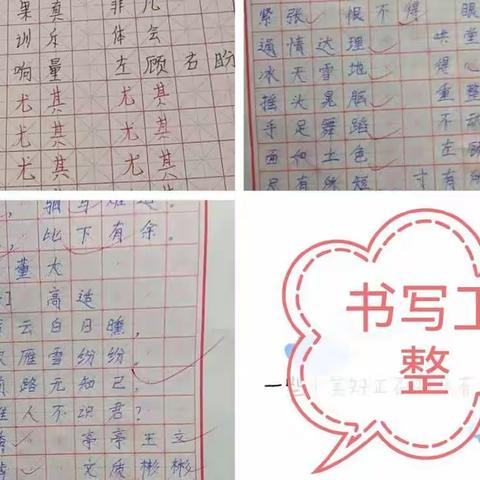 果真 非凡
训斥 体会
响量 左顾右盼
尤其 尤其
尤其 尤其
尤其 尤其
紧张 恨不得 眼
通情达理 哄堂
冰天雪地 得心
摇头晃脑 重整
手足舞蹈 不动
面如土色 左顾
尺有所短 寸有所
比下有余。
董大
高适
云白日曛,
雁雪纷纷。
路无知己,
人不识君?
亭亭玉立
文质彬彬
书写工
整